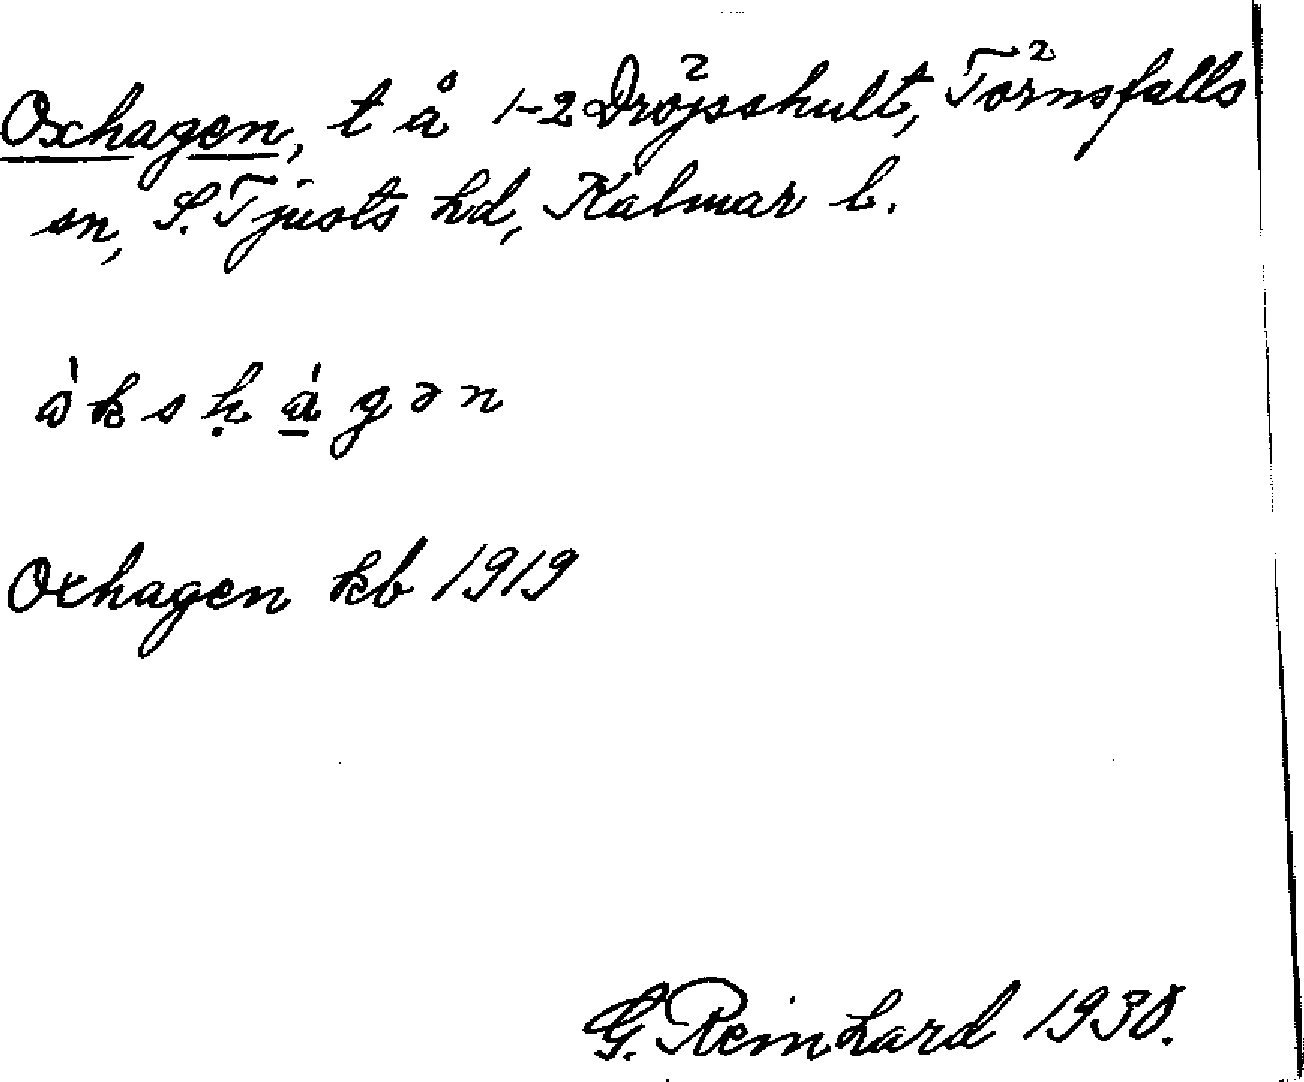 Oxhagen, t å 1-2 Dröjsshult, Törnsfalls
sn, S. Tjusts hd, Kalmar l.
òkshágən
Oxhagen kb 1919
G. Reinhard 1930.